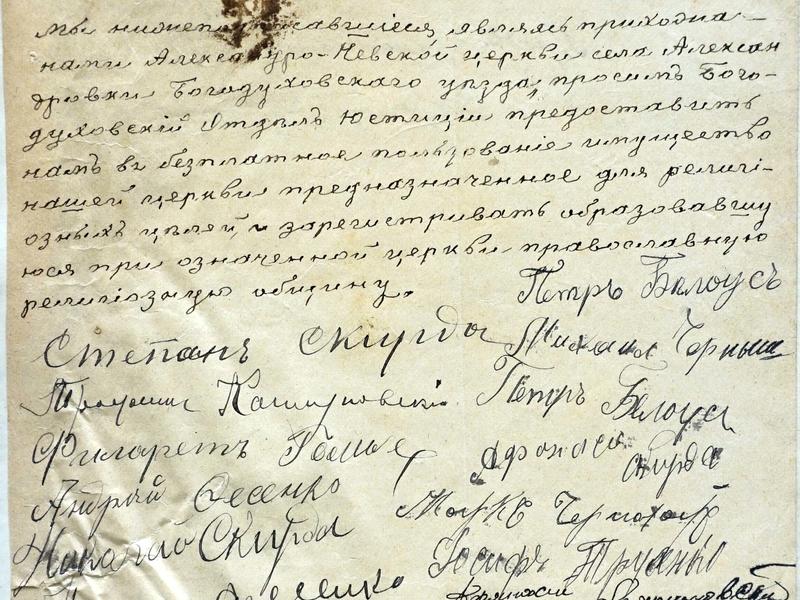 Мы нижеподписавшіеся являясь прихожа-
нами Александро-Невской церкви села Алексан
дровки Богодуховскаго уѣзда, просимъ Бого-
духовскій Отдѣлъ Юстиціи предоставить
намъ въ безплатное пользованіе имущество
нашей церкви предназначенное для религі-
озныхъ цѣлей, и зарегистривать образовавшу
юся при означенной церкви православную
религіозную общину.
Петръ Бѣлоусъ
Степанъ Скирда Михаил Черныш
Петръ Бѣлоус
Филаретъ
Афонаси Скирда
Андрей
Марко
Николай Скирда
Іосифъ